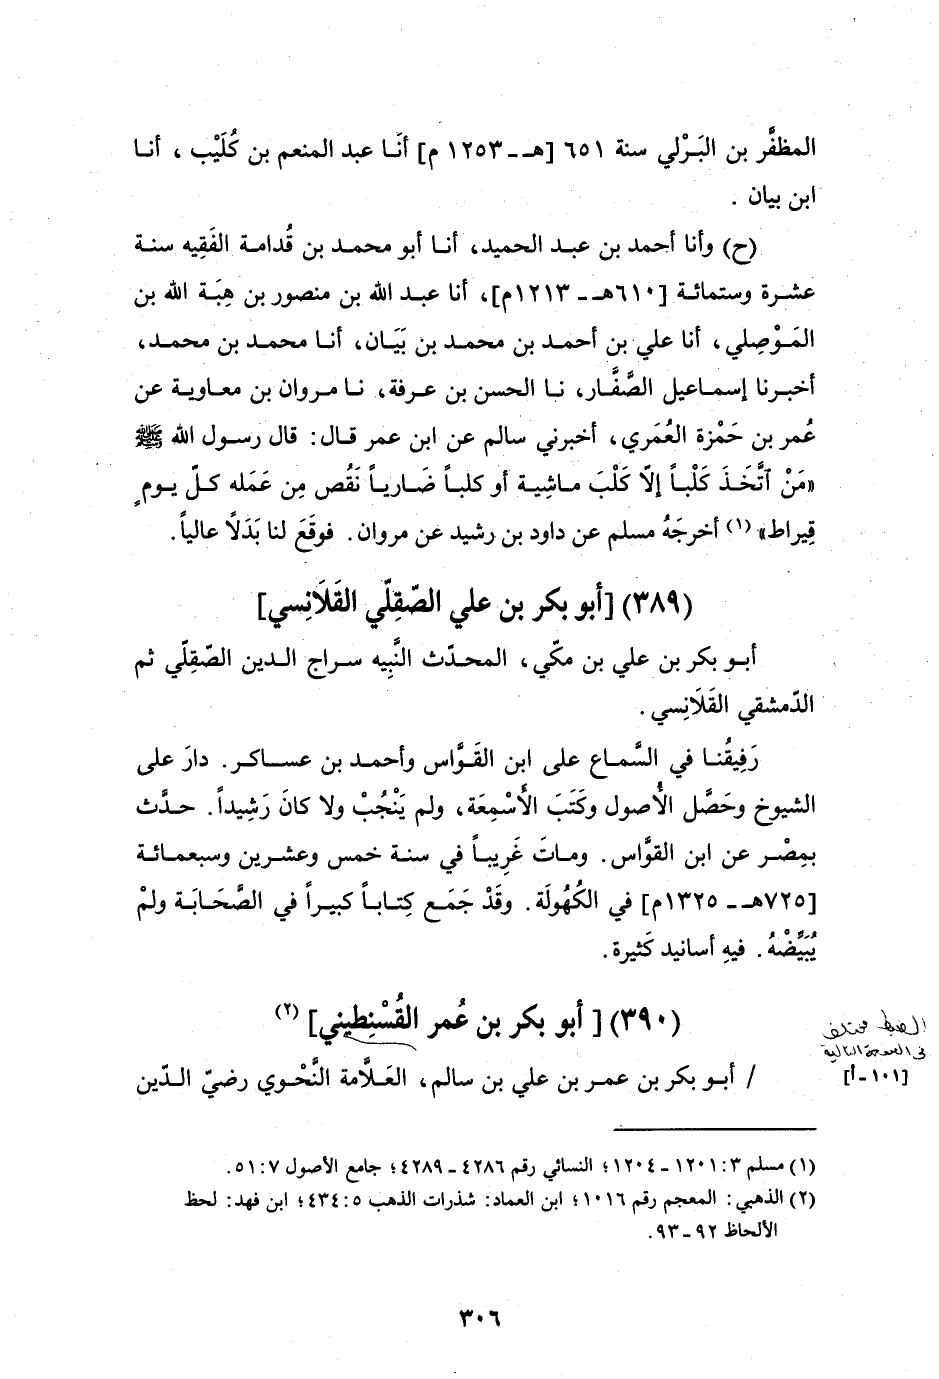 المظفَّر بن البَرْلي سنة ٦٥١ [هـ - ١٢٥٣ م] أنَا عبد المنعم بن كُلَيْب ، أنا
ابن بيان .
(ح) وأنا أحمد بن عبد الحميد، أنا أبو محمد بن قُدامة الفَقِيه سنة
عشرة وستمائة [٦١٠هـ - ١٢١٣م]، أنا عبد الله بن منصور بن هِبَة الله بن
المَوْصِلي، أنا علي بن أحمد بن محمد بن بَيَان، أنا محمد بن محمد،
أخبرنا إسماعيل الصَّفَّار، نا الحسن بن عرفة، نا مروان بن معاوية عن
عُمر بن حَمْزة العُمَري، أخبرني سالم عن ابن عمر قال: قال رسول الله ﷺ
«مَنْ ٱتَّخَذَ كَلْباً إلّا كَلْبَ ماشِية أو كلباً ضَارياً نَقُص مِن عَمَله كلّ يومٍ
قِيراط» (١) أخرجَهُ مسلم عن داود بن رشيد عن مروان. فوقَعَ لنا بَدَلًا عالياً.
(٣٨٩) [أبو بكر بن علي الصّقِلّي القَلَانِسي]
أبو بكر بن علي بن مكّي، المحدّث النَّبِيه سراج الدين الصّقِلّي ثم
الدّمشقي القَلَانِسي.
رَفِيقُنا في السَّماع على ابن القَوَّاس وأحمد بن عساكر. دارَ على
الشيوخ وحَصَّل الأُصول وكَتَبَ الأَسْمِعَة، ولم يَنْجُبْ ولا كانَ رَشِيداً. حدَّث
بمِصْر عن ابن القوَّاس. وماتَ غَرِيباً في سنة خمس وعشرين وسبعمائة
[٧٢٥هـ - ١٣٢٥م] في الكُهُولَة. وقَدْ جَمَع كِتاباً كبيراً في الصَّحَابَة ولمْ
يُبَيِّضْهُ. فيهِ أسانيد كَثيرة.
(٣٩٠) [أبو بكر بن عُمر القُسْنطِيني] (٢)
الضبط مختلف
في الصفحة التالية
[١٠١ - أ]
/ أبو بكر بن عمر بن علي بن سالم، العَلَّامة النَّحْوي رضيّ الدّين
(١) مسلم ٣: ١٢٠١ - ١٢٠٤؛ النسائي رقم ٤٢٨٦ - ٤٢٨٩؛ جامع الأصول ٧: ٥١.
(٢) الذهبي: المعجم رقم ١٠١٦؛ ابن العماد: شذرات الذهب ٥: ٤٣٤؛ ابن فهد: لحظ
الألحاظ ٩٢ - ٩٣.
٣٠٦